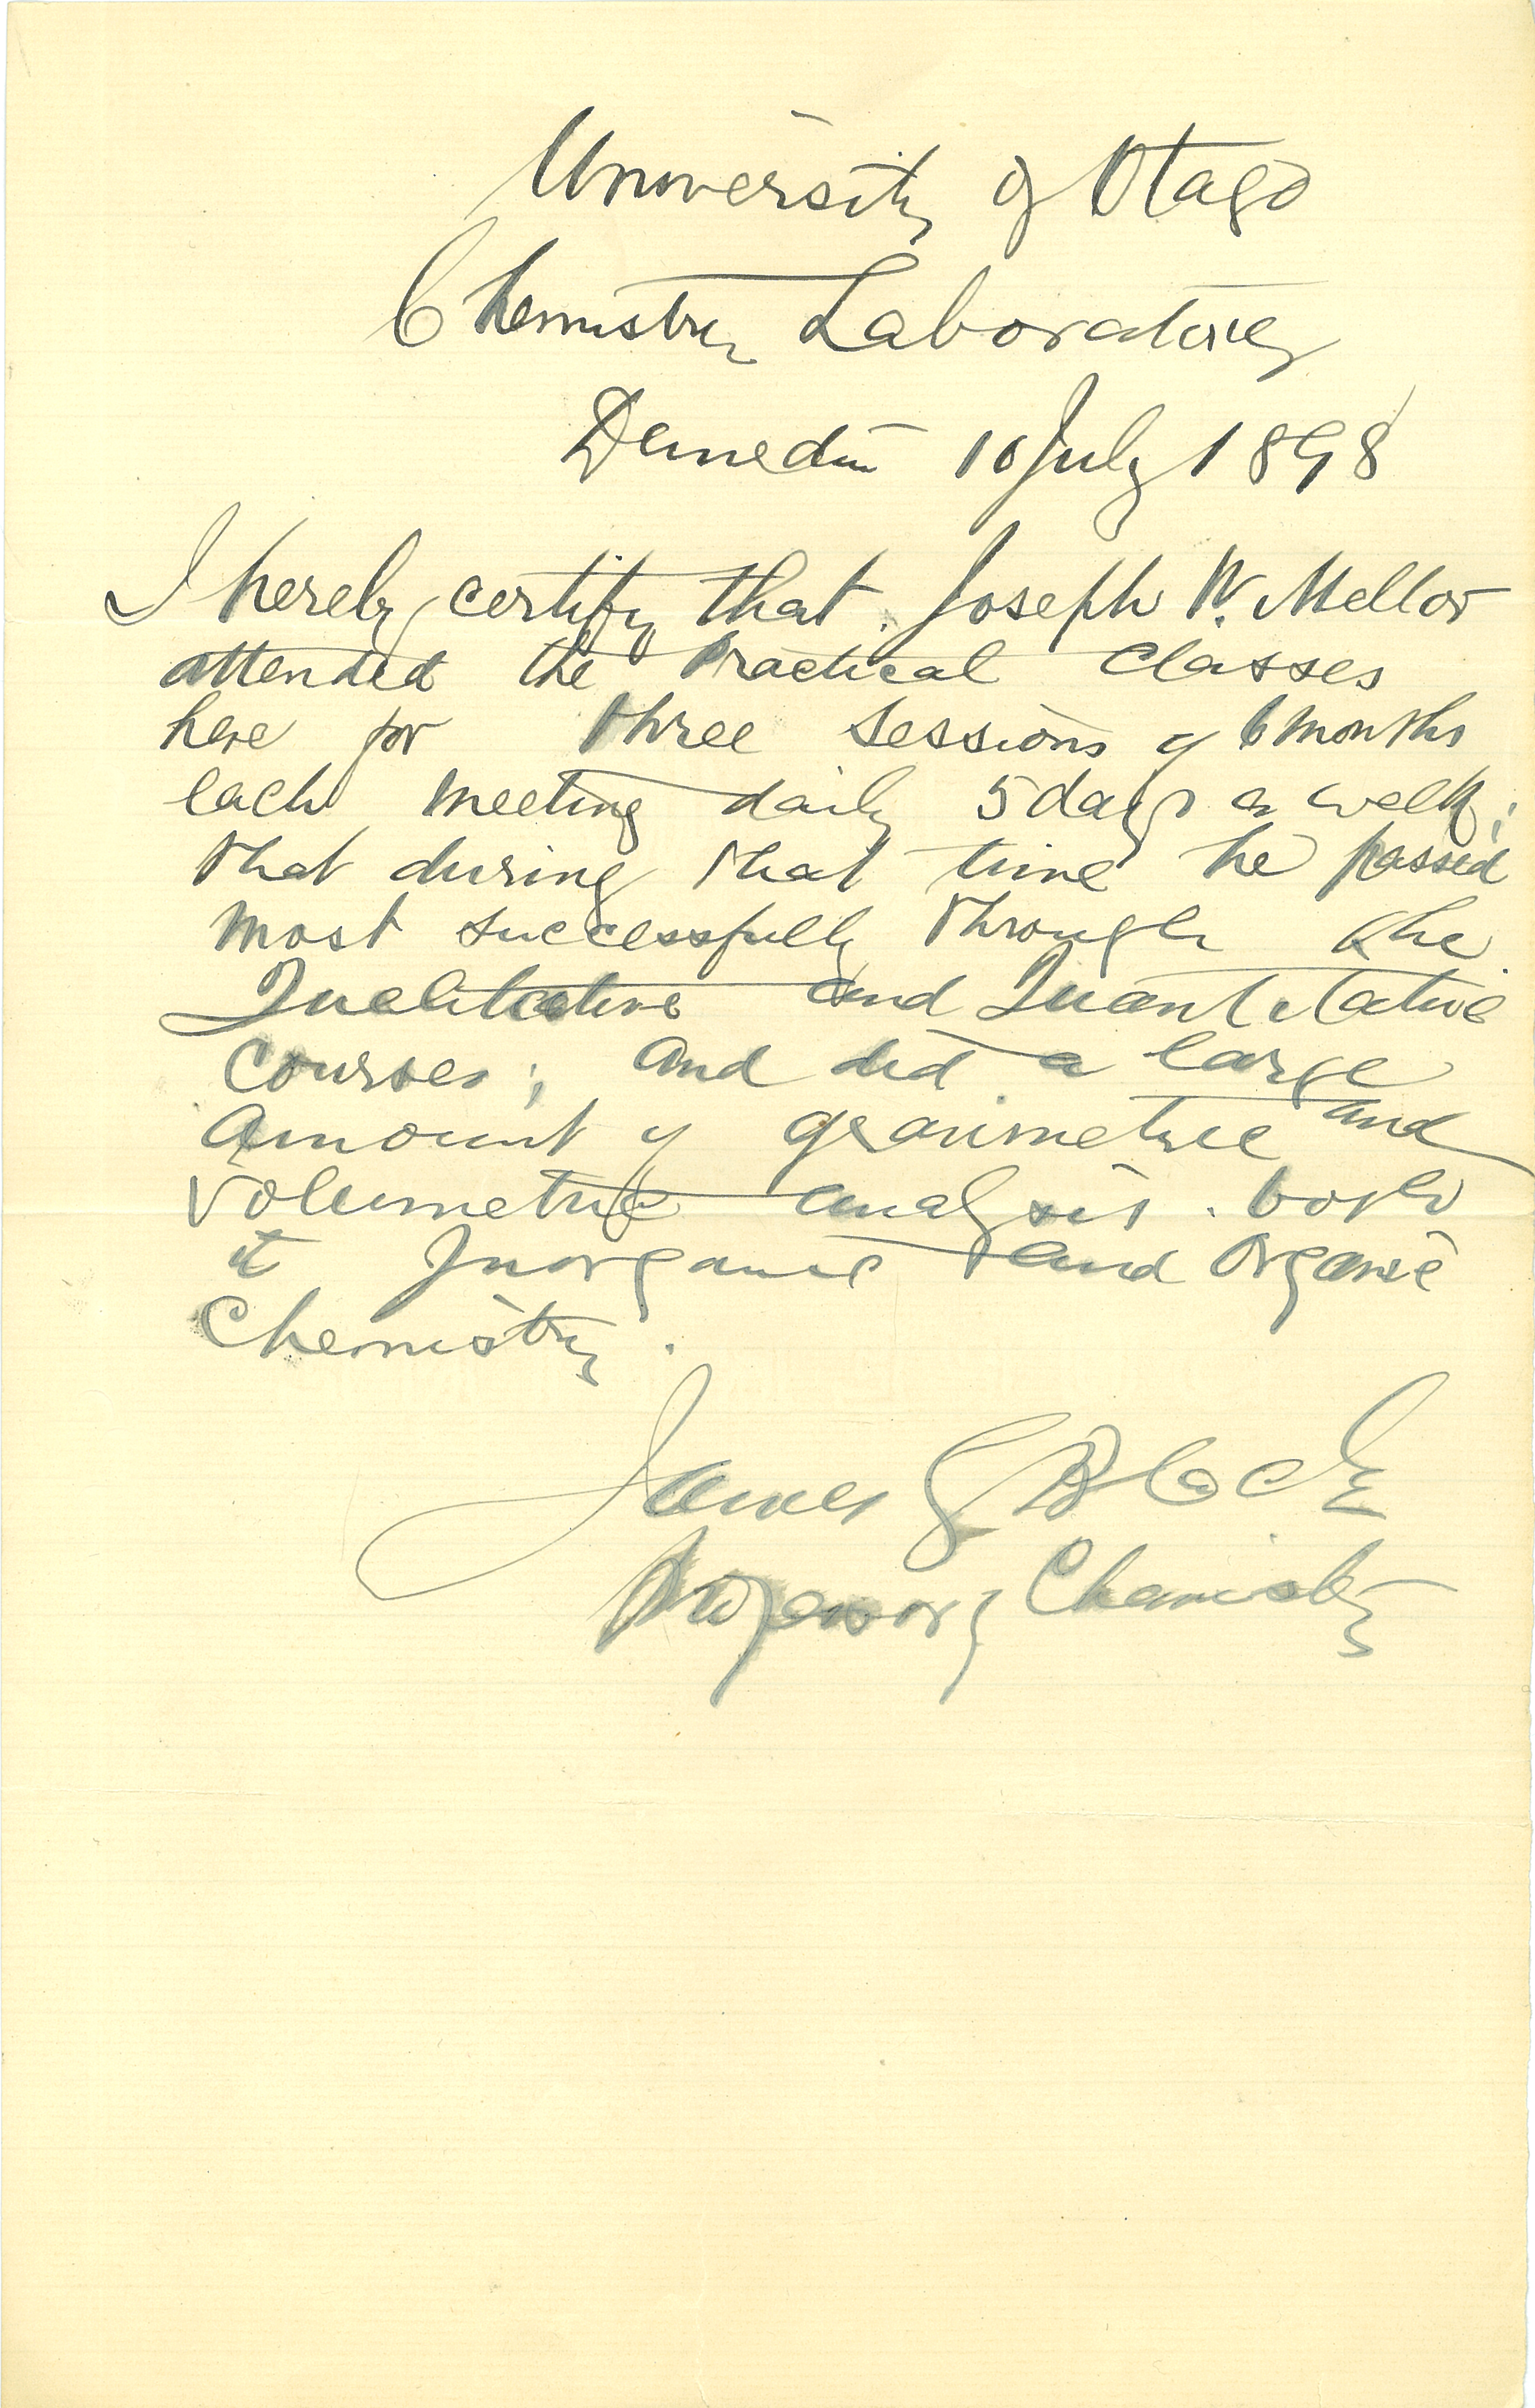 University of Otago
Chemistry Laboratory
Dunedin 10 July 1898
I hereby certify that Joseph W. Mellor
attended the Practical Classes
here for three sessions of 6 months
each meeting daily 5 days a week;
that during that time he passed
most successfully through the
Qualitative and Quantitative
Courses; and did a large
amount of gravimetric and
volumetric analysis. both
in Inorganic and Organic
Chemistry.
James G Black
Professor of Chemistry